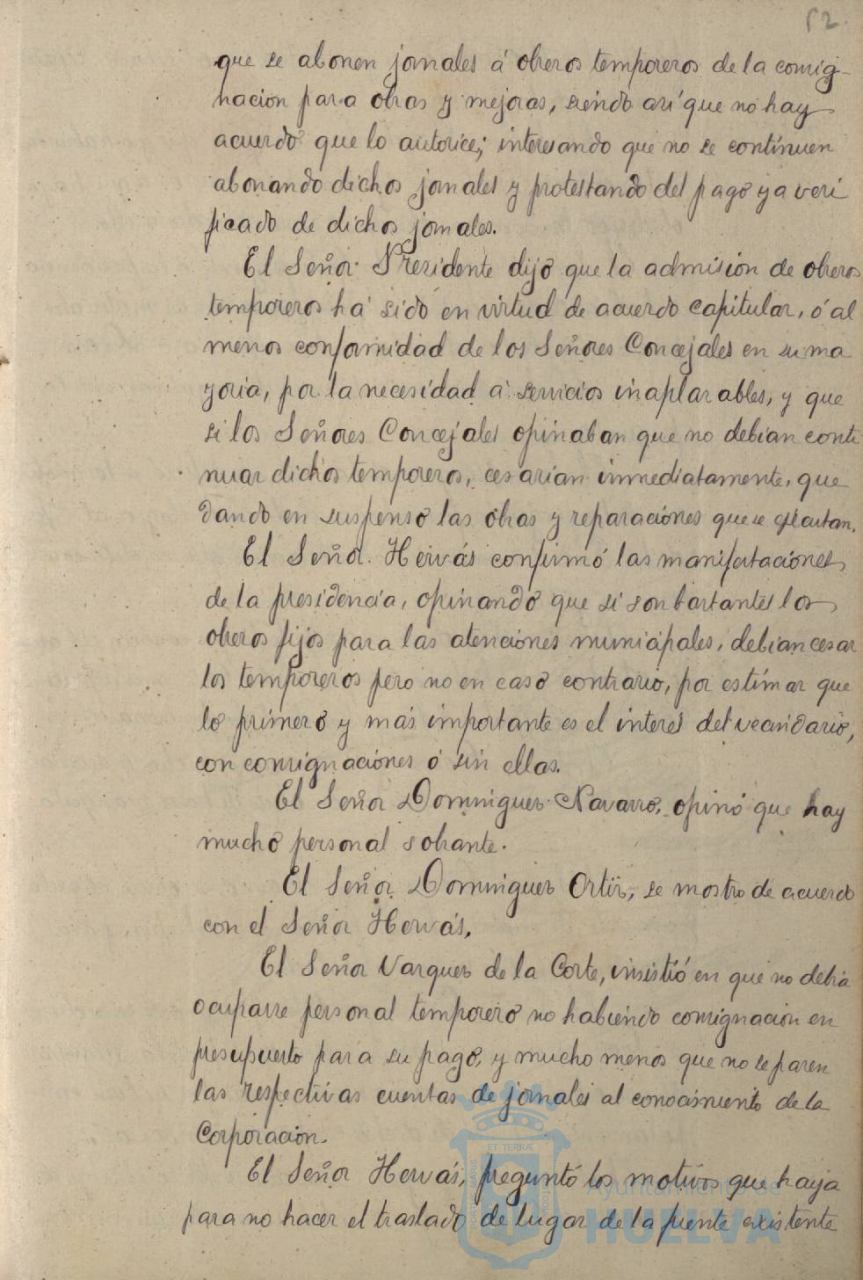 52.
que se abonen jornales á obreros temporeros de la consig-
nacion para obras y mejoras, siendo asi que no hay
acuerdo que lo autorice; interesando que no se continuen
abonando dichos jornales y protestando del pago ya veri
ficado de dichos jornales.
El Señor Presidente dijo que la admision de obreros
temporeros ha sido en virtud de acuerdo capitular, ó al
menos conformidad de los Señores Concejales en su ma
yoria, por la necesidad á servicios inaplazables, y que
si los Señores Concejales opinaban que no debian conti
nuar dichos temporeros, cesarian inmediatamente, que
dando en suspenso las obras y reparaciones que se ejecutan.
El Señor Hervás confirmó las manifestaciones
de la presidencia, opinando que si son bastantes los
obreros fijos para las atenciones municipales, debian cesar
los temporeros pero no en caso contrario, por estimar que
lo primero y más importante es el interes del vecindario,
con consignaciones ó sin ellas.
El Señor Dominguez Navarro, opinó que hay
mucho personal sobrante.
El Señor Dominguez Ortiz, se mostro de acuerdo
con el Señor Hervás.
El Señor Vazquez de la Corte, insistió en que no debia
ocuparse personal temporero no habiendo consignacion en
presupuesto para su pago, y mucho menos que no se pasen
las respectivas cuentas de jornales al conocimiento de la
Corporacion.
El Señor Hervás, preguntó los motivos que haya
para no hacer el traslado de lugar de la fuente existente
ET TERRÆ
Ayuntamiento de
HUELVA